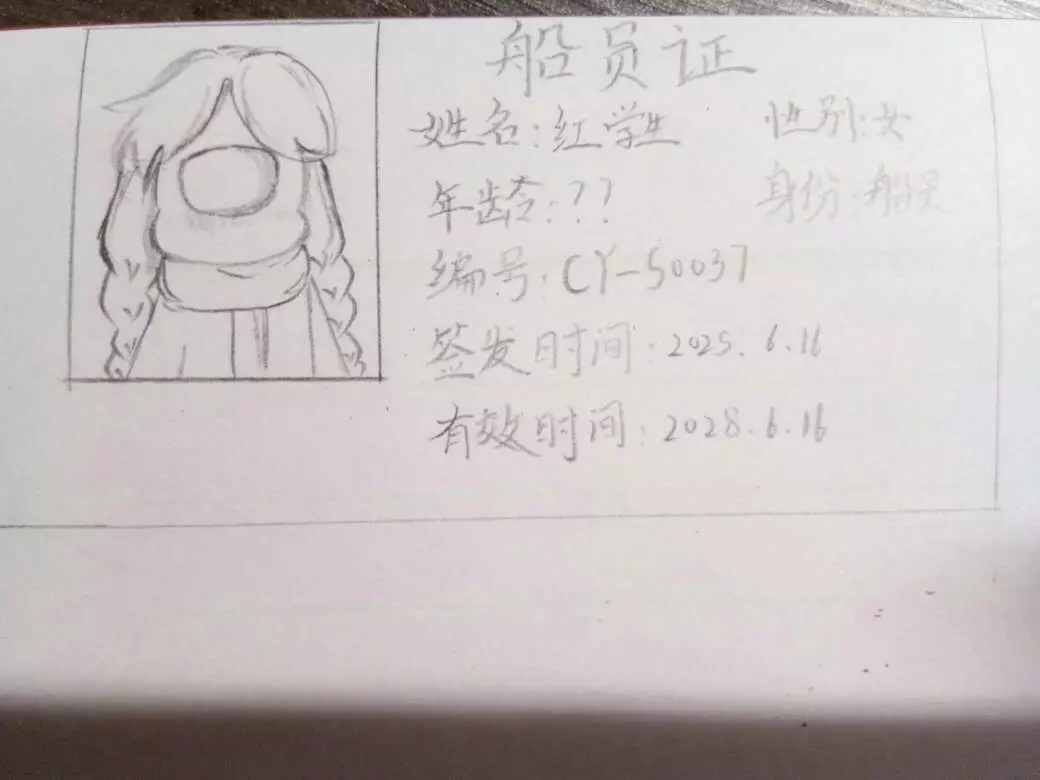 船员证
姓名:红学生 性别:女
年龄:?? 身份:船员
编号:CY-S0037
签发时间:2025.6.16
有效时间:2028.6.16